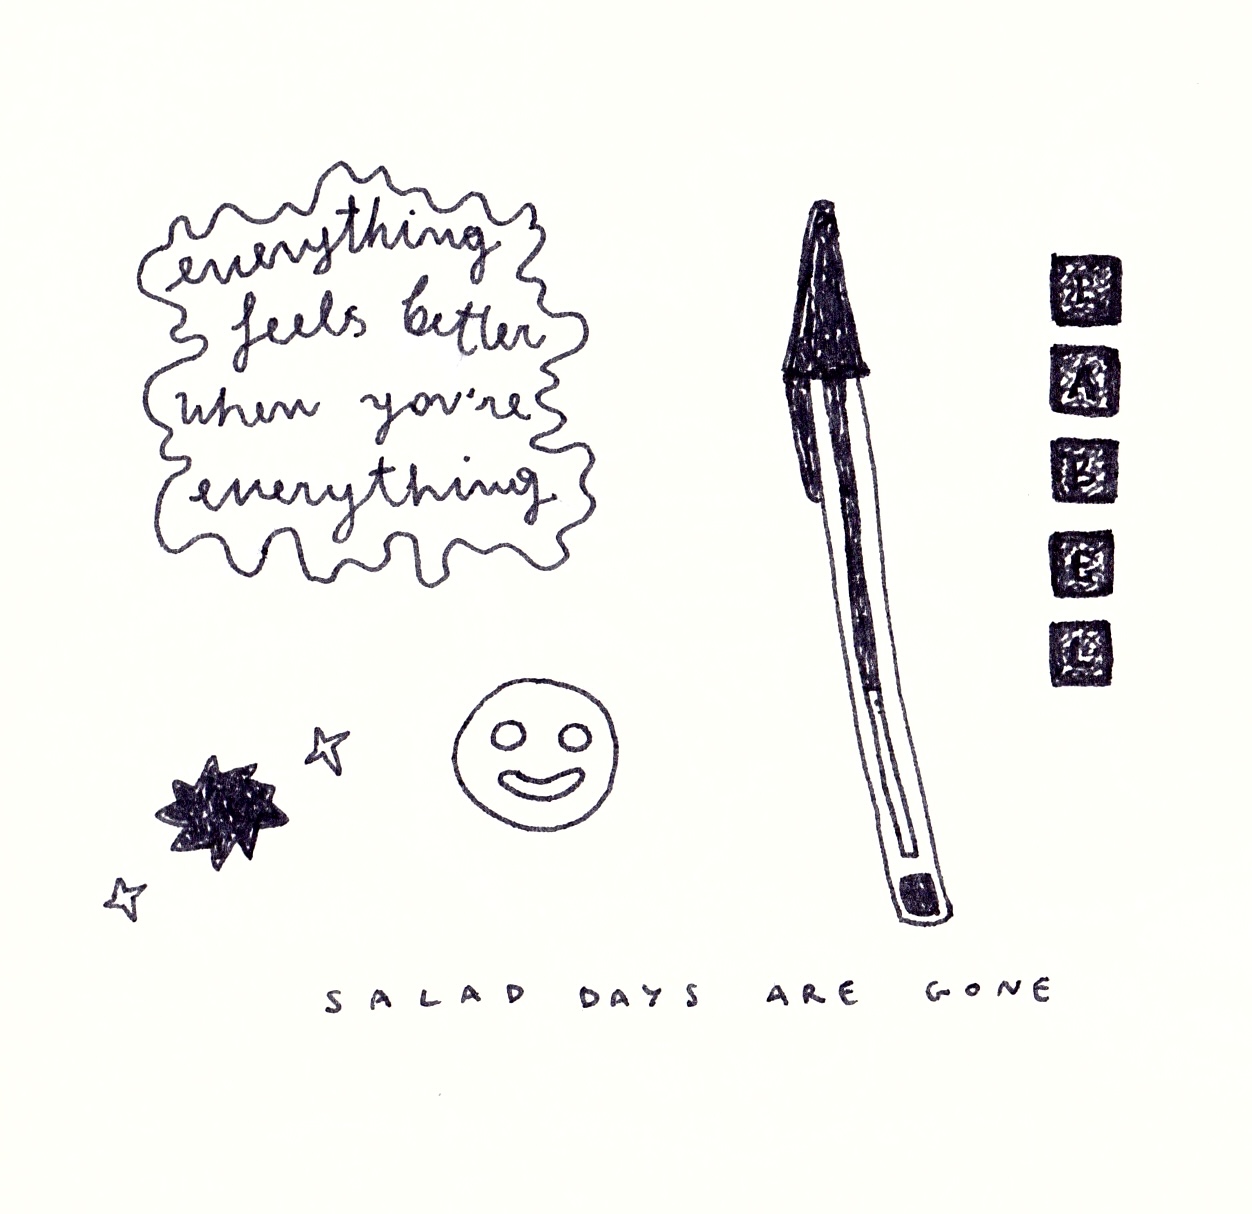 everything
feels better
when you're
everything
L
A
B
E
L
SALAD DAYS ARE GONE